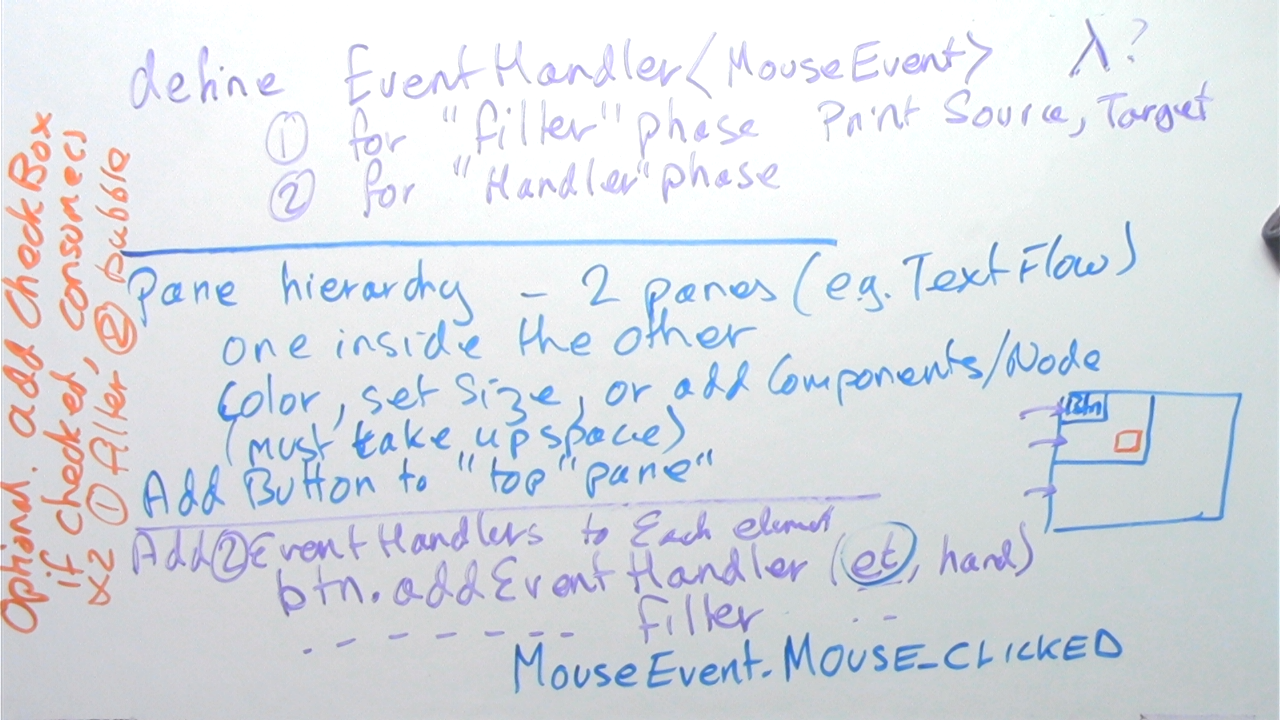 define EventHandler<MouseEvent> λ?
① for "filter" phase Print Source, Target
② for "Handler" phase
Pane hierarchy - 2 panes (e.g. TextFlow)
one inside the other
color, set size, or add Components/Node
(must take up space)
Add Button to "top" pane"
Btn
Add ② EventHandlers to Each element
btn.addEventHandler (et, hand)
- - - - - - - Filter - -
MouseEvent.MOUSE_CLICKED
Optional. add CheckBox
if checked, consumes
x2 ① filter ② bubble